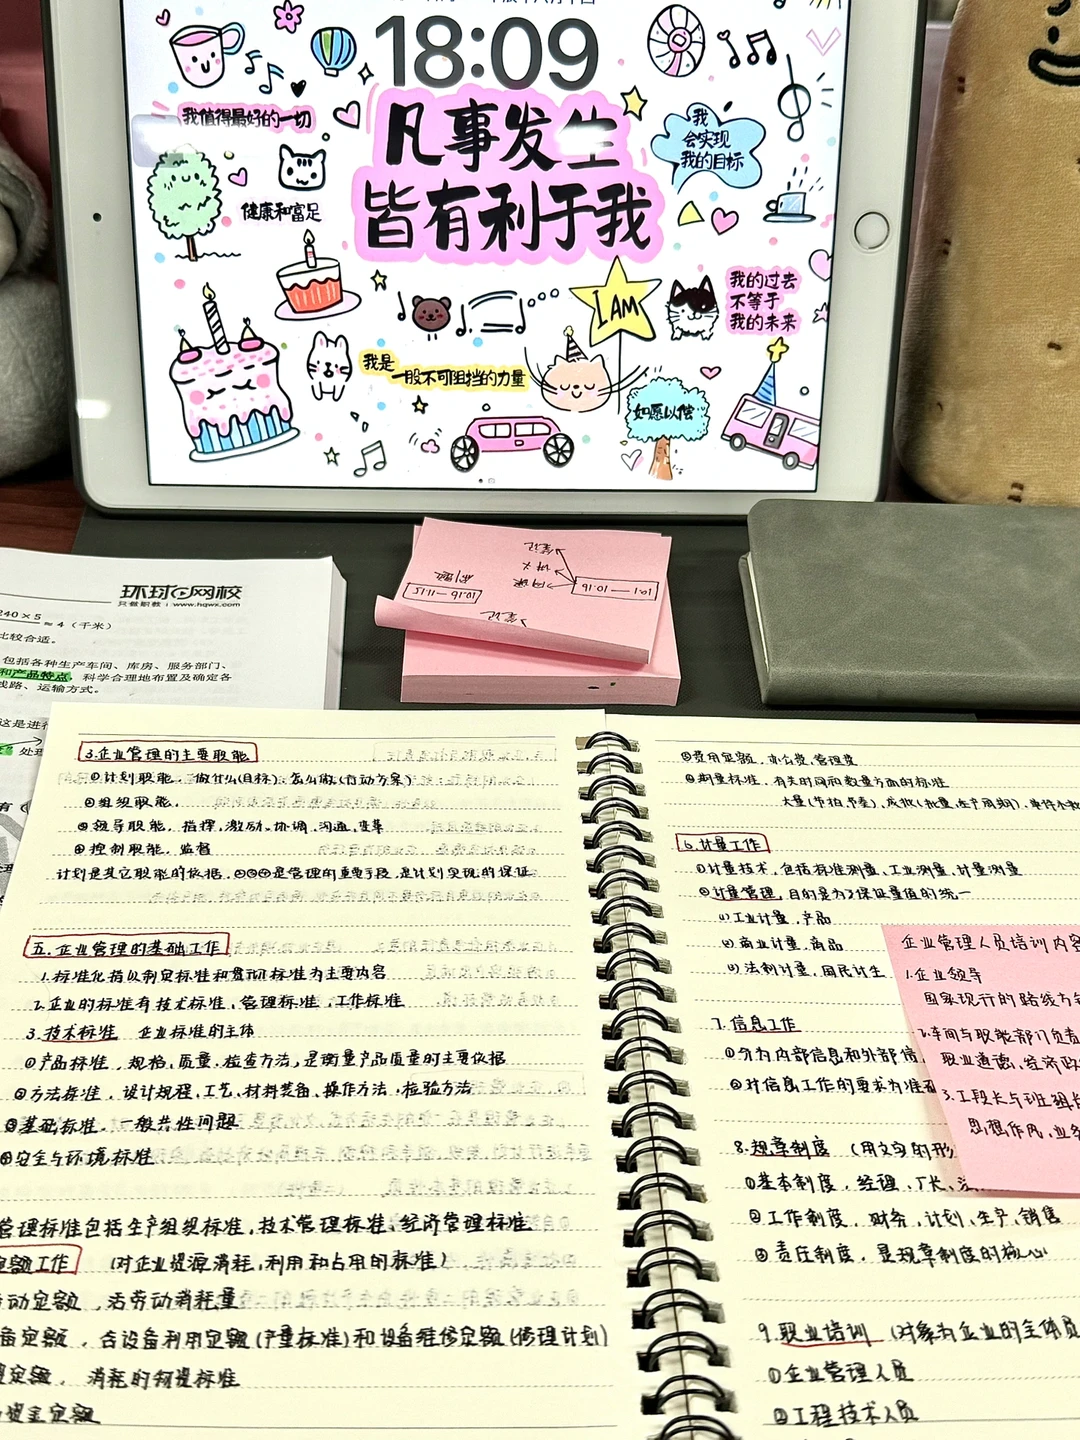 18:09
凡事发生
皆有利于我
我值得最好的一切
健康和富足
我
会实现
我的目标
I AM
我的过去
不等于
我的未来
我是
一股不可阻挡的力量
如愿以偿
环球网校
只做职教：www.hqwx.com
240×5
≈4（千米）
比较合适。
包括各种生产车间、库房、服务部门、
和产品特点，科学合理地布置及确定各
线路、运输方式。
这是进行
处理
有
笔记
讲义
网课
10.1——10.16
刷题
10.16——11.15
笔记
3.企业管理的主要职能
①计划职能，做什么(目标)，怎么做(行动方案)
②组织职能，
③领导职能，指挥，激励，协调，沟通，变革
④控制职能，监督
计划是其它职能的依据，②③④是管理的重要手段，是计划实现的保证
五.企业管理的基础工作
1.标准化指以制定标准和贯彻标准为主要内容
2.企业的标准有技术标准、管理标准、工作标准
3.技术标准 企业标准的主体
①产品标准，规格、质量、检查方法，是衡量产品质量的主要依据
②方法标准，设计规程、工艺、材料装备、操作方法、检验方法
③基础标准，一般共性问题
④安全与环境标准
管理标准包括生产组织标准、技术管理标准、经济管理标准
定额工作 (对企业资源消耗，利用和占用的标准)
劳动定额，活劳动消耗量
设备定额，含设备利用定额(产量标准)和设备维修定额(修理计划)
物资定额，消耗的物资标准
资金定额
⑤费用定额，办公费，管理费
⑥期量标准，有关时间和数量方面的标准
大量(节拍、节奏)、成批(批量、生产周期)、单件小批
6.计量工作
①计量技术，包括标准测量、工业测量、计量测量
②计量管理，目的是为了保证量值的统一
(1)工业计量，产品
(2)商业计量，商品
(3)法制计量，国民计生
7.信息工作
①分为内部信息和外部信
②对信息工作的要求为准确
8.规章制度 (用文字的形
①基本制度，经理、厂长、
②工作制度，财务、计划、生产、销售
③责任制度，是规章制度的核心
9.职业培训 (对象为企业的主体员
①企业管理人员
②工程技术人员
企业管理人员培训内容
1.企业领导
国家现行的路线方针
2.车间与职能部门负责
职业道德、经济政
3.工段长与班组长
思想作风、业务